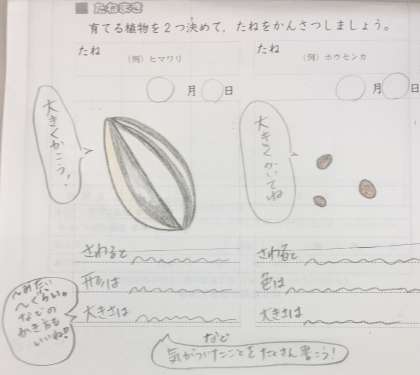 たねまき
育てる植物を2つ決めて,たねをかんさつしましょう。
たね
(例)ヒマワリ
月 日
大きくかこう!
さわると
形は
大きさは
〜みたい
〜くらい。
などの
かき方も
いいね!
たね
(例)ホウセンカ
月 日
大きくかいてね
さわると
色は
大きさは
など
気がついたことをたくさん書こう!